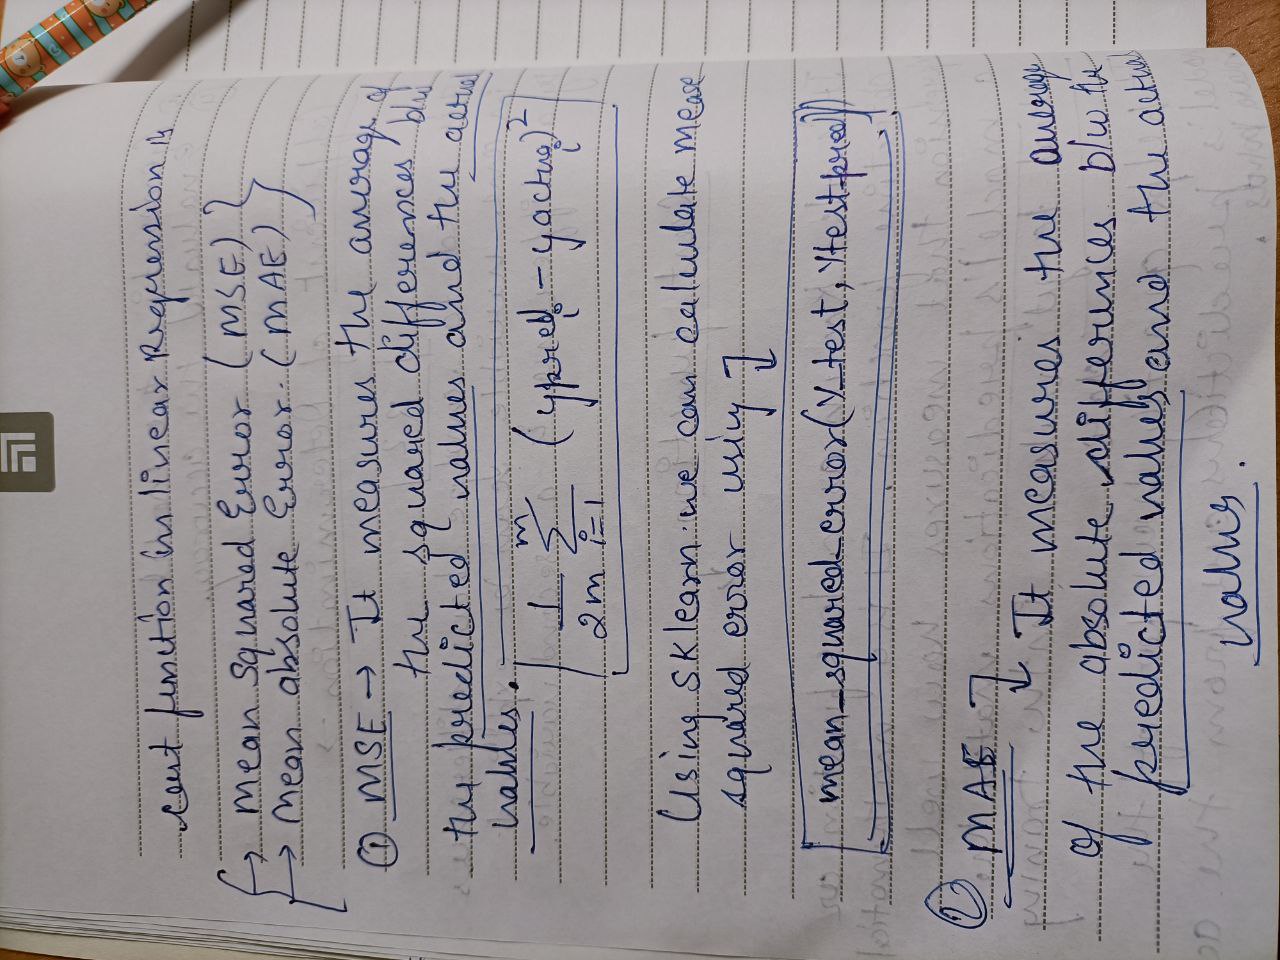 cost function in linear Regression is
→ Mean Squared Error (MSE)
→ Mean absolute Error. (MAE)
① MSE → It measures the average of
the squared differences b/w
the predicted values and the actual
values.
1/2m m∑i=1 (ypredi - yactuali)²
Using sklearn we can calculate mean
squared error using
mean_squared_error(Y_test, Ytest_pred)
② MAE
It measures the average
of the absolute differences b/w the
predicted values and the actual
values.